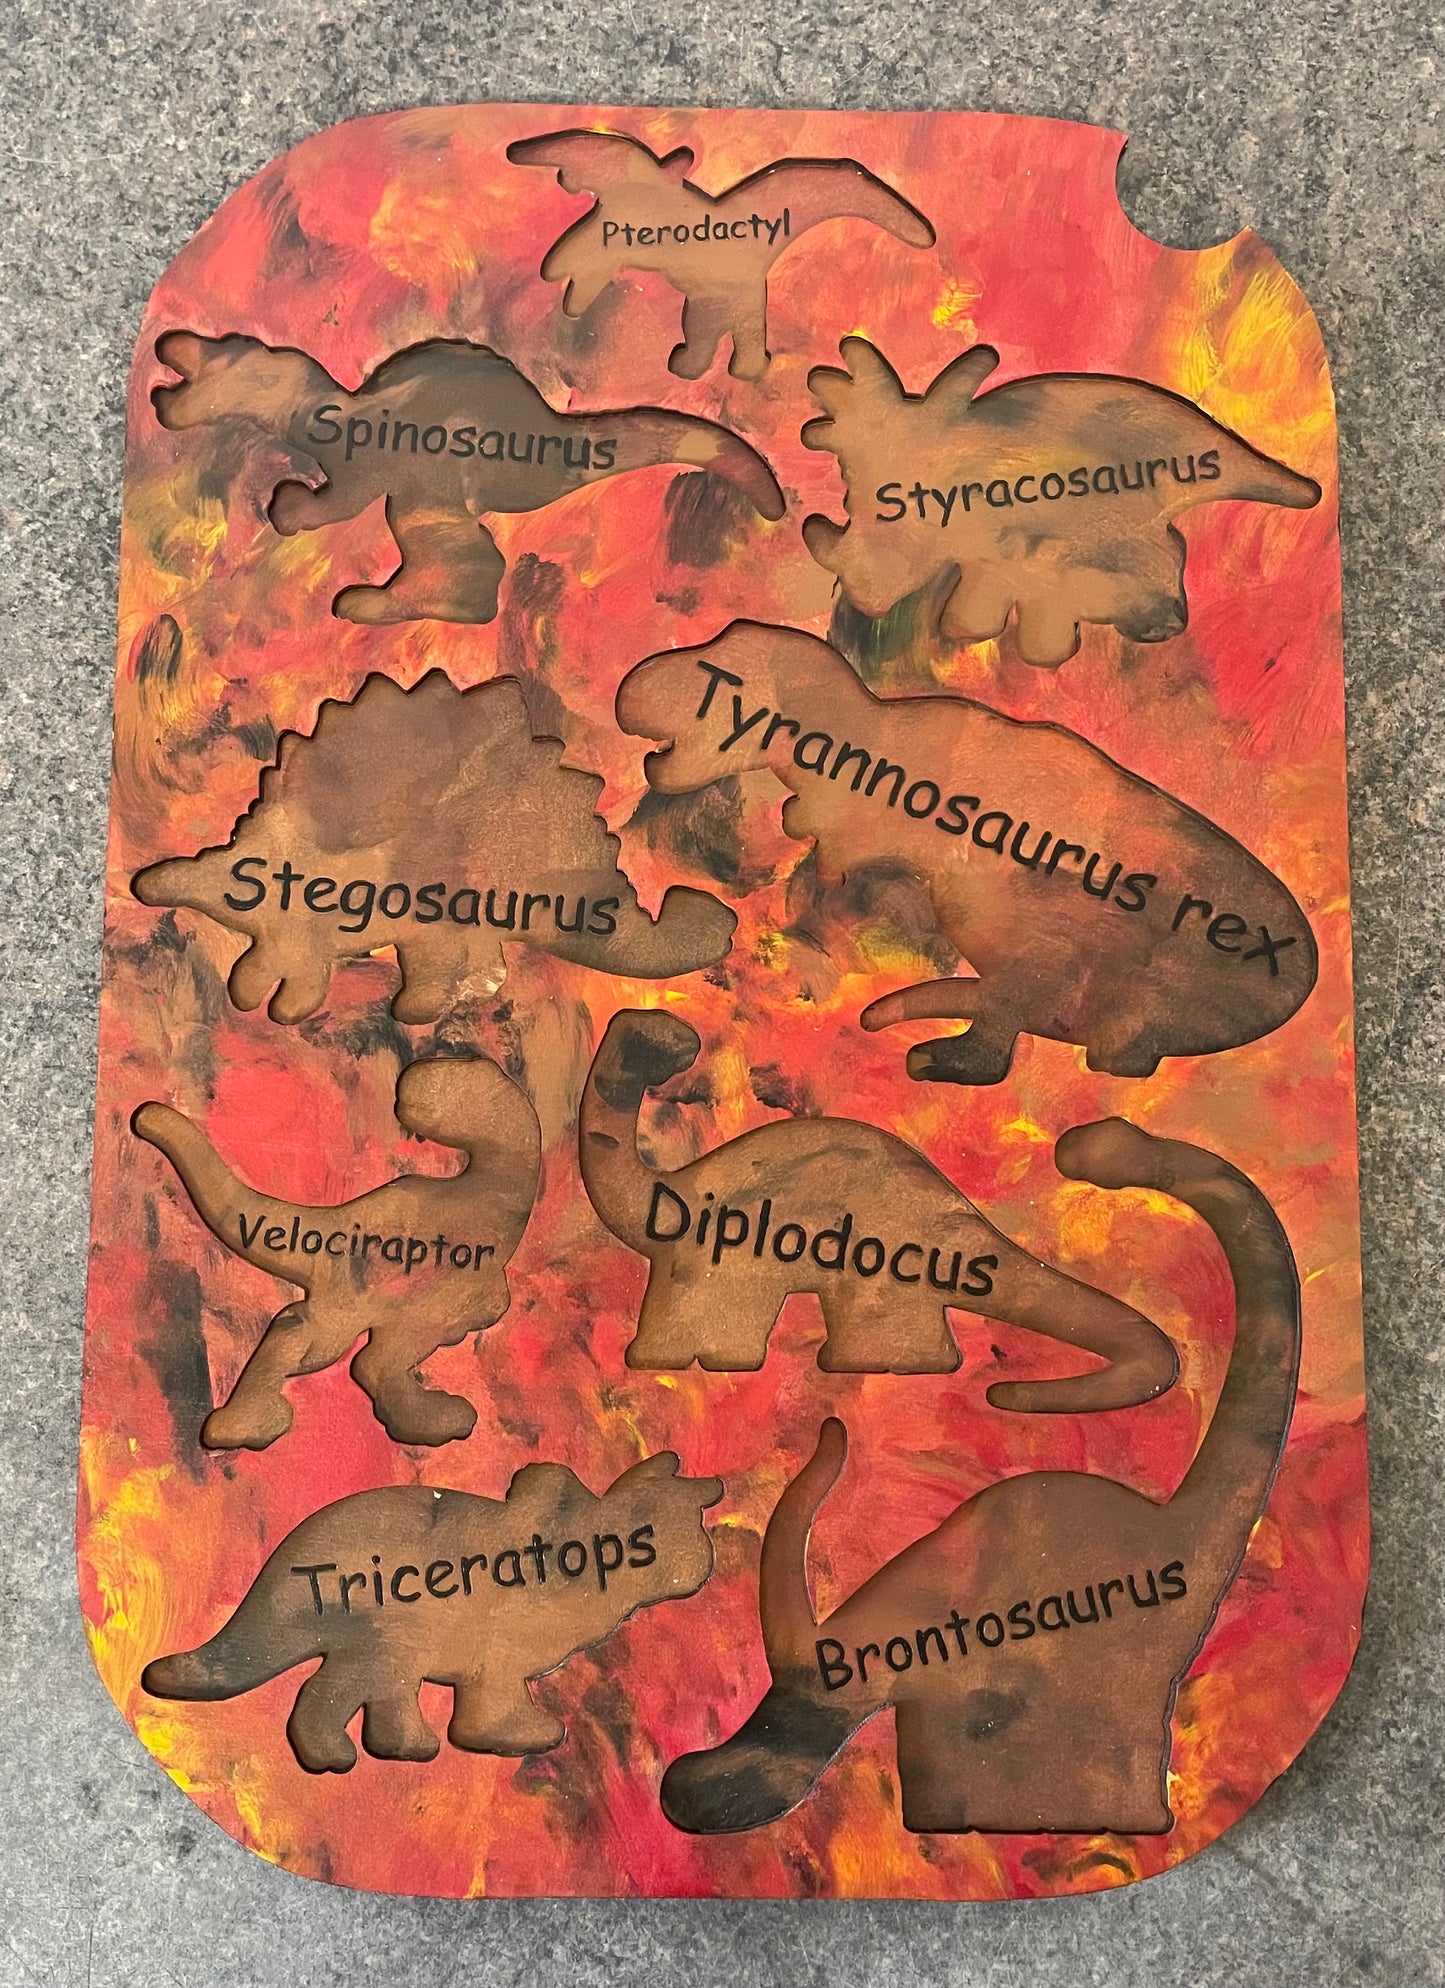 Pterodactyl
Spinosaurus
Styracosaurus
Tyrannosaurus rex
Stegosaurus
Velociraptor
Diplodocus
Triceratops
Brontosaurus